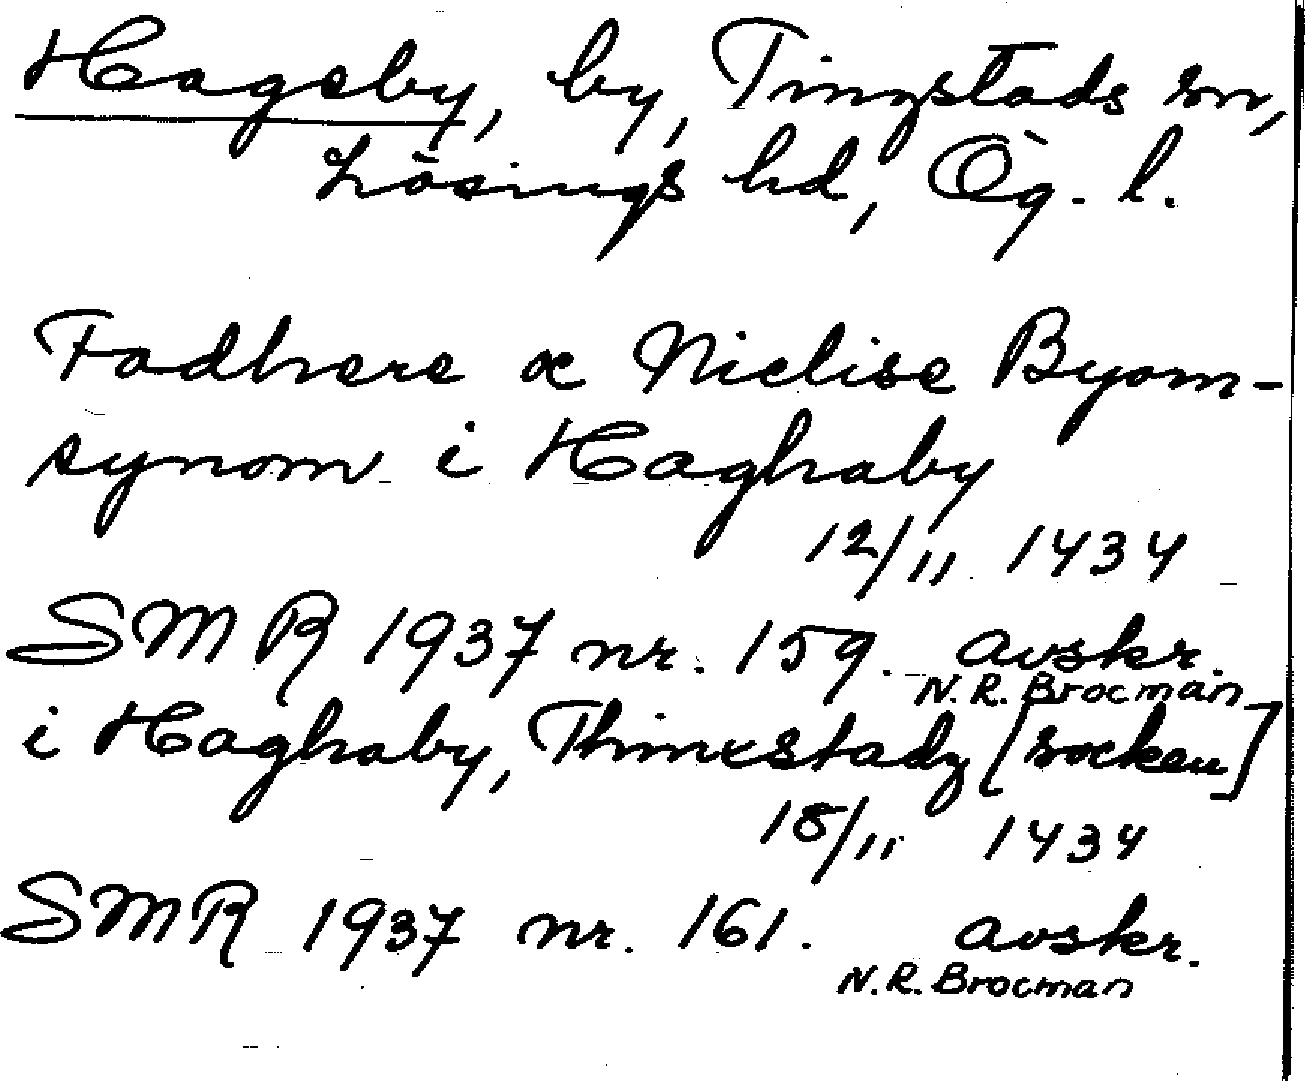 Hageby, by, Tingstads sn,
Lösings hd, Ög. l.
Fadhere oc Nielise Byom-
synom i Haghaby
12/11 1434
SMR 1937 nr. 159. avskr.
N.R. Brocman
i Haghaby, Thinxstadz [socken]
18/11 1434
SMR 1937 nr. 161. avskr.
N.R. Brocman